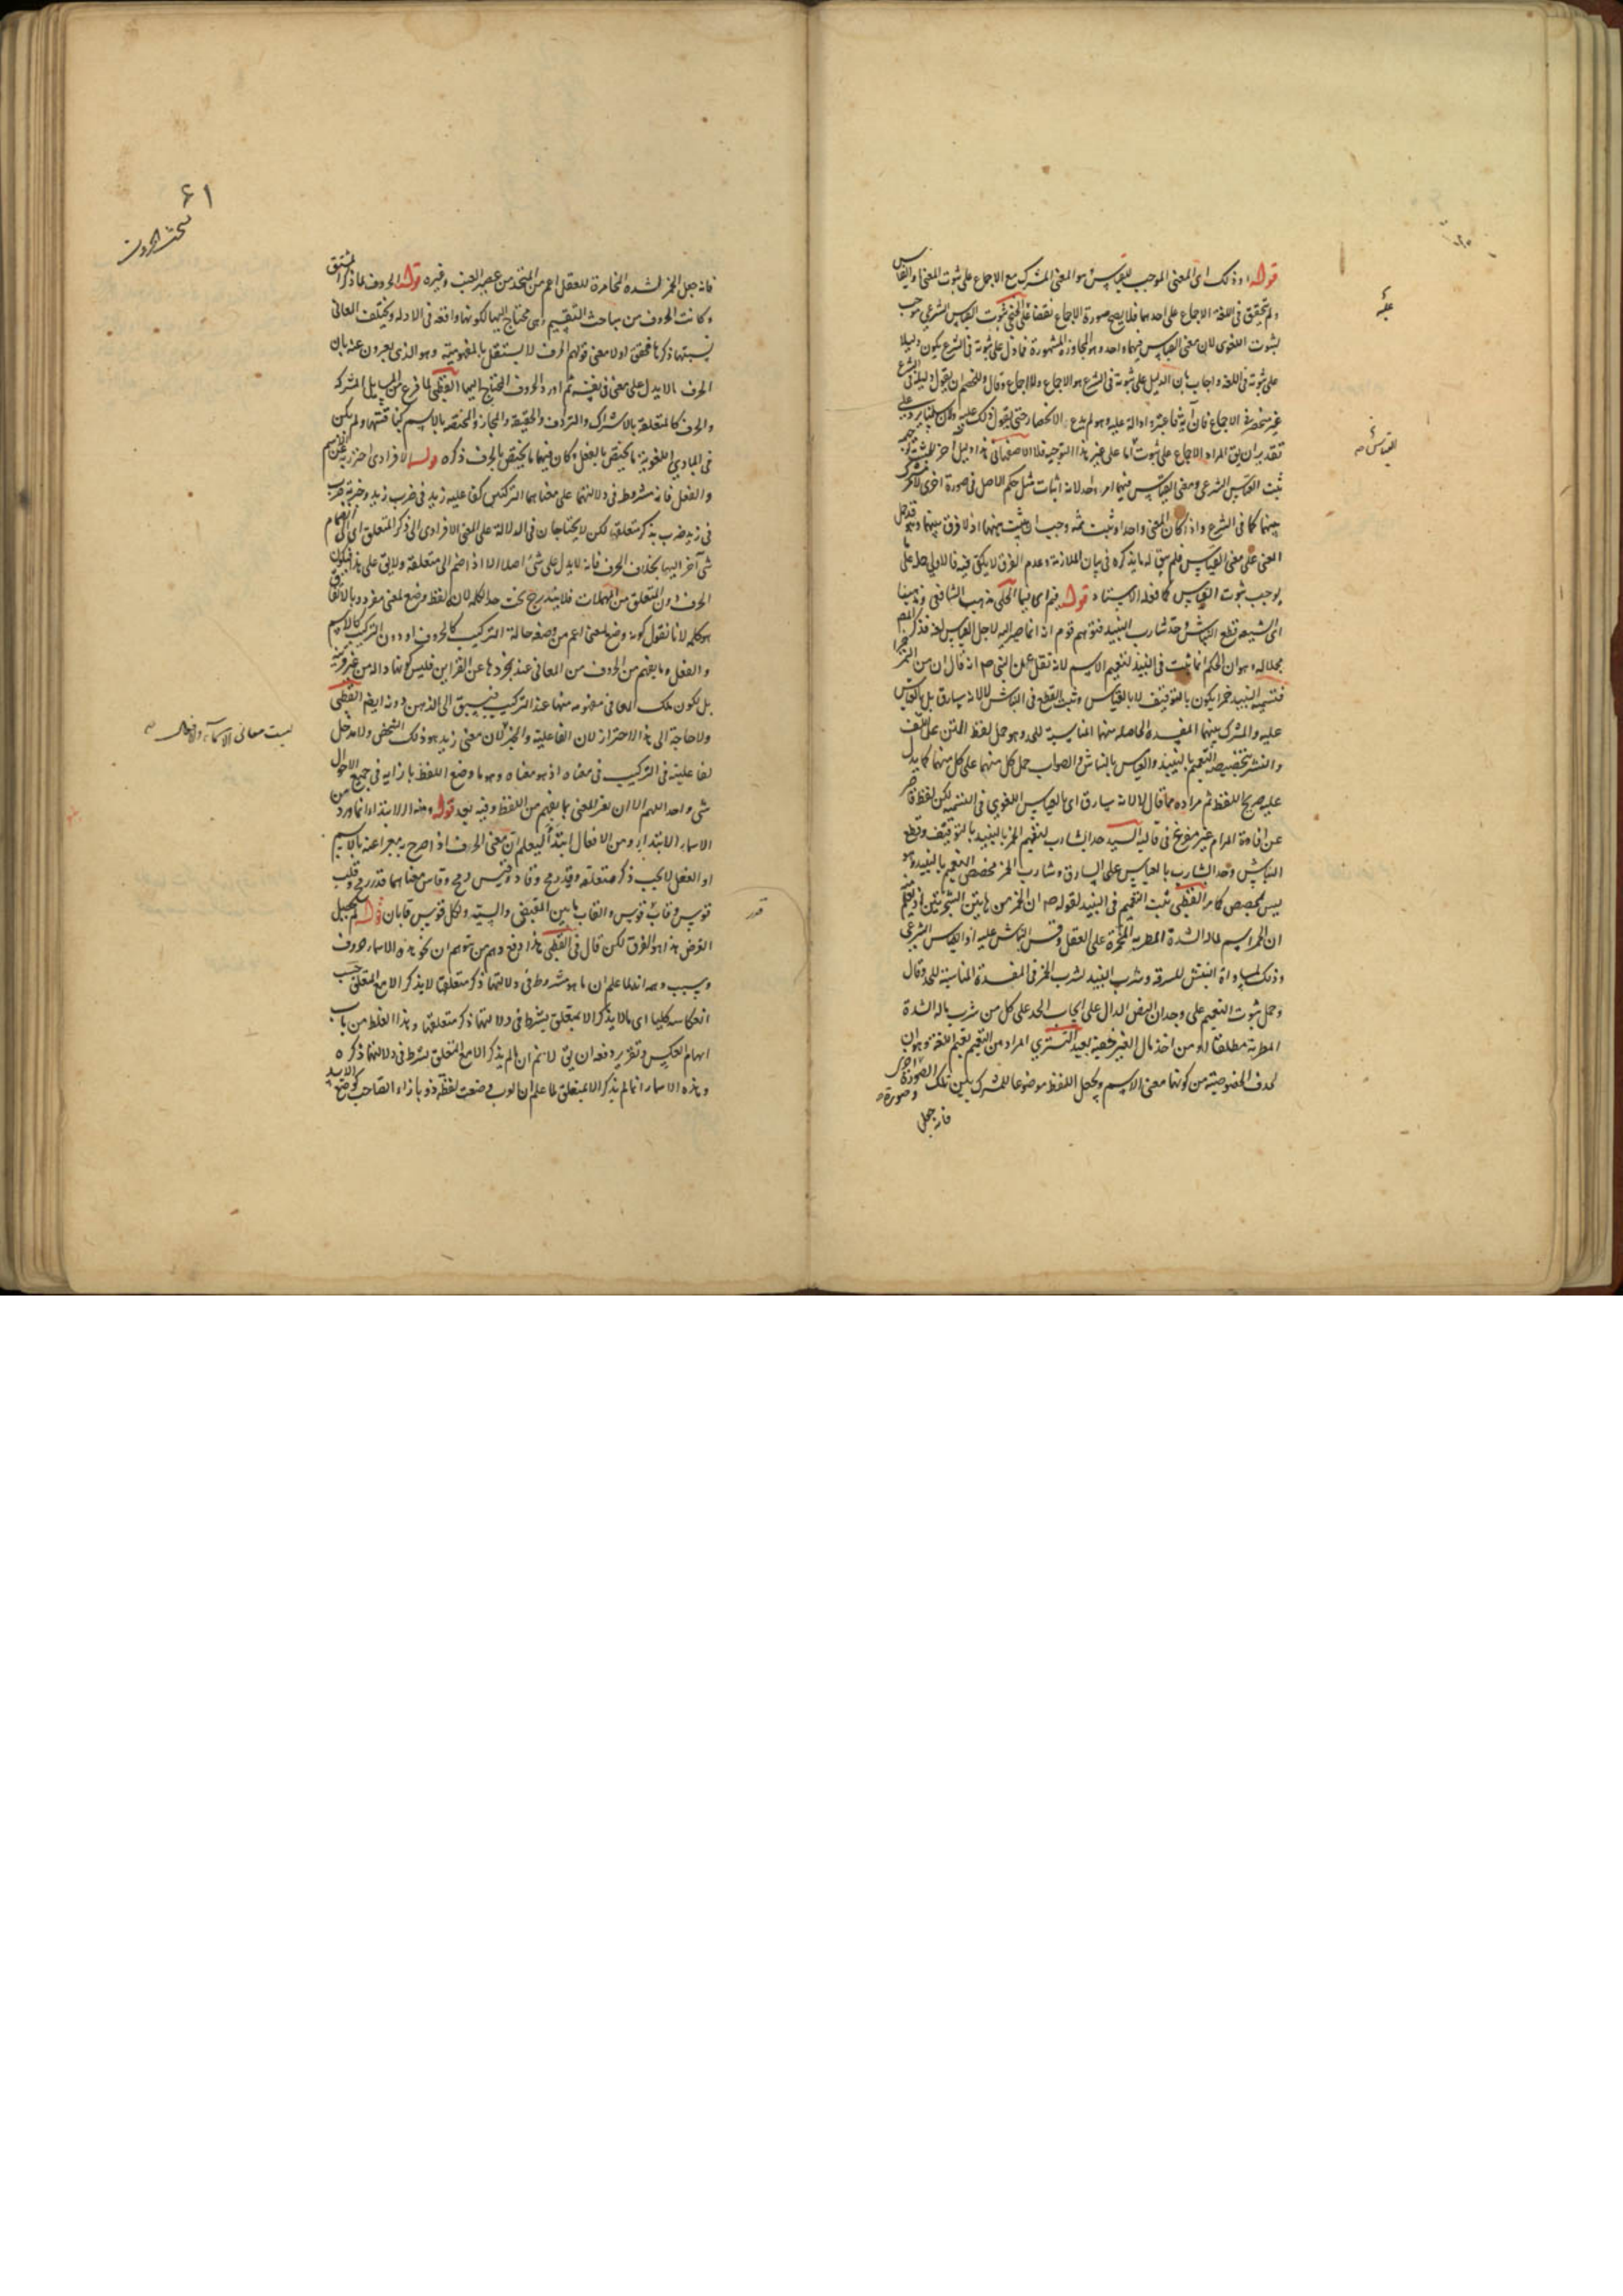 قوله وذلك اى المعنى الموجب للقياس هو المعنى المشترك مع الاجماع على ثبوت المعنى والقياس
ولم يتحقق فى اللغة الاجماع على احدهما فلا يصح صورة الاجماع نقضا على الخصم ثبوت القياس الشرعى موجب
لثبوت اللغوى لان معنى القياس فيهما واحد وهو المجاوزة المشهورة فما دل على ثبوته فى الشرع يكون دليلا
على ثبوته فى اللغة واجاب بان الدليل على ثبوته فى الشرع هو الاجماع ولا اجماع وقال وللخصم ان يقول دليله فى الشرع
غير منحصر فى الاجماع فان آية فاعتبروا دالة عليه وهو لم يدع الانحصار حتى يقول ذلك عليه
تقدير ان يق المراد الاجماع على ثبوته اما على غير هذا التوجيه فلا الاصفهانى هذا دليل آخر للمثبت
ثبت القياس الشرعى ومعنى القياس فيهما امر واحد لانه اثبات مثل حكم الاصل فى صورة اخرى لامر مشترك
بينهما كما فى الشرع واذا كان المعنى واحدا وثبت ثمه وجب ان يثبت ههنا اذ لا فرق بينهما
المعنى على معنى القياس فلم يبق له ما يذكره فى بيان الملازمة وعدم الفرق لا يكفى فيه فالاولى حمله على ما
يوجب ثبوت القياس كما فعله الاستاد قوله فيم اى فيما الحلى مذهب الشافعى ومذهبنا
اى الشيعة قطع النباش وحد شارب النبيذ فتوهم قوم انه انما صير اليه لاجل القياس لغة فذكر المص
بجلاله وهو ان الحكم انما ثبت فى النبيذ لتعميم الاسم لانه نقل عن النبى ص انه قال ان من التمر خمرا
فتسمية النبيذ خمرا يكون بالتوقيف لا بالقياس وثبت القطع فى النباش لا لانه سارق بل بالقياس
عليه والمشترك بينهما المفسدة الحاصلة منهما المناسبة للحد وهو حمل لفظ المتن على اللف
والنشر بتخصيص التعميم بالنبيذ والقياس بالنباش والصواب حمل كل منهما على كل منهما كما يدل
عليه صريح اللفظ ثم مراده مما قال لا لانه سارق اى بالقياس اللغوى فى التسمية لكن لفظه قاصر
عن افادة المرام غير مفرغ فى قالبه السيد حد الشارب لتعميم الخمر بالنبيذ بالتوقيف وقطع
النباش وحد الشارب بالقياس على السارق وشارب الخمر فخصص التعميم بالنبيذ وهو
ليس بمخصص كما مر القطبى ثبت التعميم فى النبيذ لقوله ص ان الخمر من هاتين الشجرتين اذ يعلم منه
ان الخمر اسم لما له الشدة المطربة المخمرة على العقل وقس النباش عليه اذ القياس الشرعى
وذلك لمساواة النبش للسرقة وشرب النبيذ لشرب الخمر فى المفسدة المناسبة للحد وقال
وحمل ثبوت التعميم على وجدان النص الدال على ايجاب الحد على كل من شرب ما له الشدة
المطربة مطلقا او من اخذ مال الغير خفية بعيد التسترى المراد من التعميم تعميم اللغة وهو ان
يحذف الخصوصية من كونها معنى الاسم ويجعل اللفظ موضوعا للمشترك بين تلك الصورة وصورة اخرى
فانه جعل
علية
القياس ص
٦١
بحث الحروف
فانه جعل الخمر للشدة المخامرة للعقل اعم من المتخذ من عصير العنب وغيره قوله الحروف لما ذكر المشتق
وكانت الحروف من مباحث التقسيم وهى محتاج اليها لكونها واقعة فى الادلة ويختلف المعانى
بسببها ذكرها فحقق اولا معنى قولهم الحرف لا يستقل بالمفهومية وهو الذى يعبرون عنه بان
الحرف ما لا يدل على معنى فى نفسه ثم اورد الحروف المحتاج اليها القطبى لما فرغ من المسائل المشتركة
والحرف كالمتعلقة بالاشتراك والترادف والحقيقة والمجاز والمختصة بالاسم كمناقشتها ولم يكن
فى المبادى اللغوية ما يختص بالفعل وكان فيهما ما يختص بالحرف ذكره قوله الافرادى احترز به عن الاسم
والفعل فانه مشروط فى دلالتهما على معناهما التركيبى كفاعلية زيد فى ضرب زيد وخبرية ضرب
فى زيد ضرب بذكر متعلقه لكن لا يحتاجان فى الدلالة على المعنى الافرادى الى ذكر المتعلق اى الى انضمام
شئ آخر اليهما بخلاف الحرف فانه لا يدل على شئ اصلا الا اذا ضم الى متعلقه ولا يق على هذا فيكون
الحرف دون المتعلق من المهملات فلا يندرج تحت حد الكلمة لان كل لفظ وضع لمعنى مفرد وبالاتفاق
هو كلمة لانا نقول كونه وضع لمعنى اعم من وضعه حالة التركيب كالحروف او دون التركيب كالاسم
والفعل وما يفهم من الحروف من المعانى عند تجردها عن القراين فليس كونها دالة من غير قرينة
بل لكون تلك المعانى مفهومة منها عند التركيب فيسبق الى الذهن دونه ايضا القطبى
ولا حاجة الى هذا الاحتراز لان الفاعلية والخبر لان معنى زيد هو ذلك الشخص ولا مدخل
لفاعليته فى التركيب فى معناه اذ هو معناه وهو ما وضع اللفظ بازايه فى جميع الاحوال
شئ واحد اللهم الا ان يفسر المعنى بما يفهم من اللفظ وفيه بعد قوله وهذا الابتداء انما ورد من
الاسماء الابتداء ومن الافعال ابتدأ ليعلم ان معنى الحرف اذا صرح به معبرا عنه بالاسم
او الفعل لا يجب ذكر متعلقه وقيد رمح وقاد وقيس رمح وقاس معناهما قدر رمح وقلب
قوس وقاب قوس والقاب ما بين المقبض والسية ولكل قوس قابان قوله لم يحصل
الغرض هذا هو الفرق لكن قال فى القطبى هذا دفع وهم من توهم ان نحو هذه الاسماء حروف
وسبب وهمه انه لما علم ان ما هو مشروط فى دلالتها ذكر متعلقها لا يذكر الا مع المتعلق حسب
انعكاسه كليا اى ما لا يذكر الا بمتعلق يشترط فى دلالتها ذكر متعلقها وهذا الغلط من باب
ايهام العكس وتقرير دفعه ان يق لا نم ان ما لم يذكر الا مع المتعلق يشترط فى دلالتها ذكره
وهذه الاسماء انما لم يذكر الا بمتعلق لما علم ان العرب وضعت لفظة ذو بازاء الصاحب كوضع الاسد
ليست معانى الاسماء والافعال ص
قدر